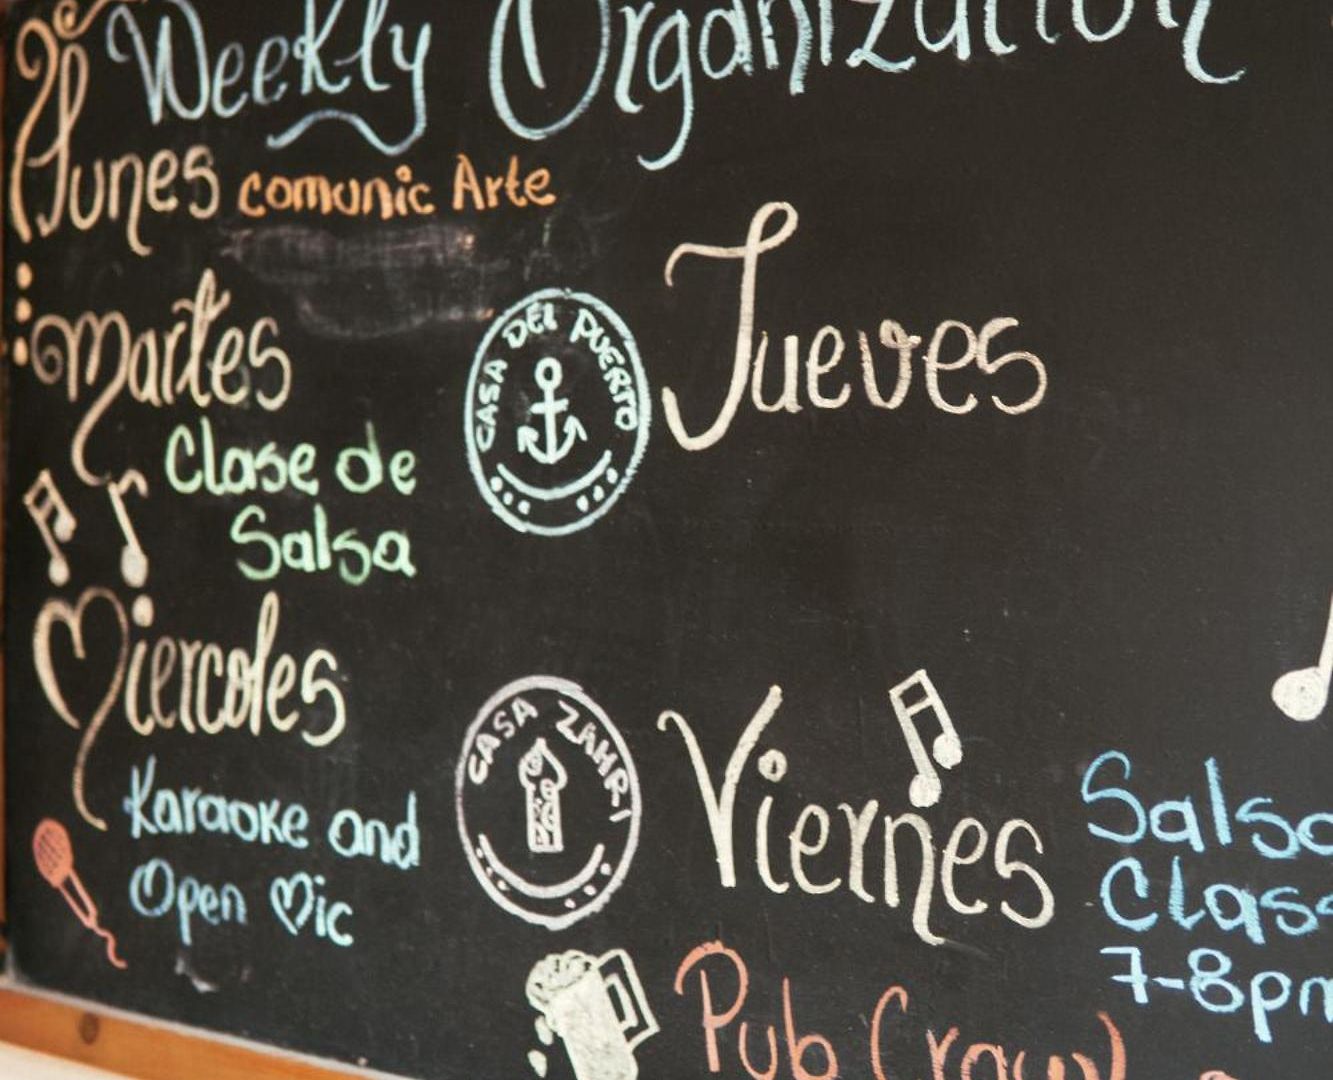 Weekly Organization
Lunes comunic Arte
Martes
Clase de
Salsa
Miercoles
Karaoke and
Open Mic
CASA DEL PUERTO
CASA ZAHRI
Jueves
Viernes
Salsa
Class
7-8pm
Pub Crawl